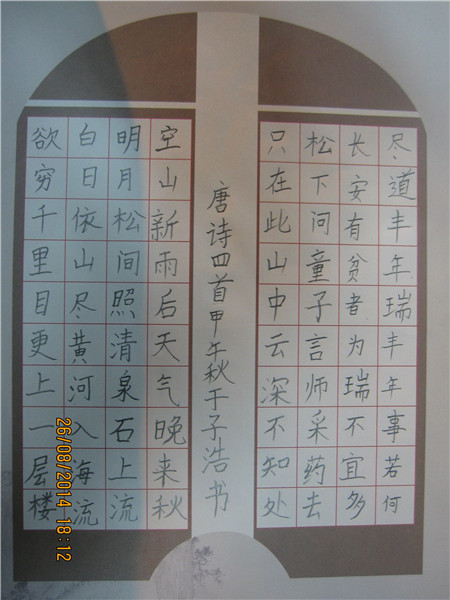 尽道丰年瑞丰年事若何
长安有贫者为瑞不宜多
松下问童子言师采药去
只在此山中云深不知处
唐诗四首甲午秋于子浩书
空山新雨后天气晚来秋
明月松间照清泉石上流
白日依山尽黄河入海流
欲穷千里目更上一层楼
26/08/2014 18:12